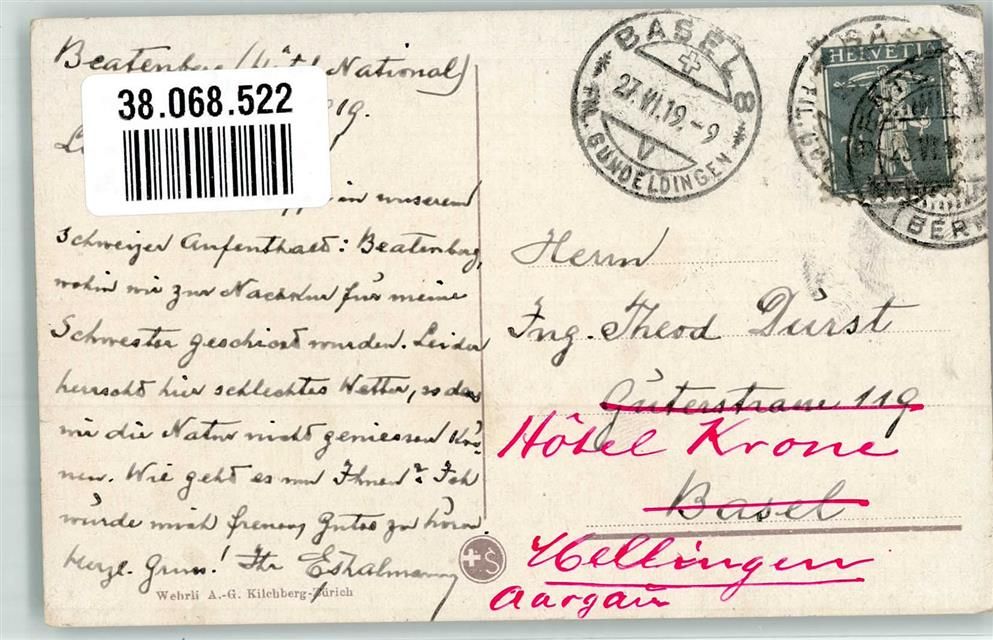 Beatenberg (Hôtel National)
38.068.522
19.
in unserem
Schweizer Aufenthalt: Beatenberg,
wohin wir zur Nachkur für meine
Schwester geschickt wurden. Leider
herrscht hier schlechtes Wetter, so dass
wir die Natur nicht geniessen kön-
nen. Wie geht es nun Ihnen? Ich
würde mich freuen, Gutes zu hören.
Herzl. Gruss! Ihr
Wehrli A.-G. Kilchberg-Zürich
BASEL 8
27.VI.19.-9
V
FIL. GUNDELDINGEN
HELVETIA
(BERN
Herrn
Ing. Theod Dürst
Güterstrasse 119
Hôtel Krone
Basel
Mellingen
Aargau